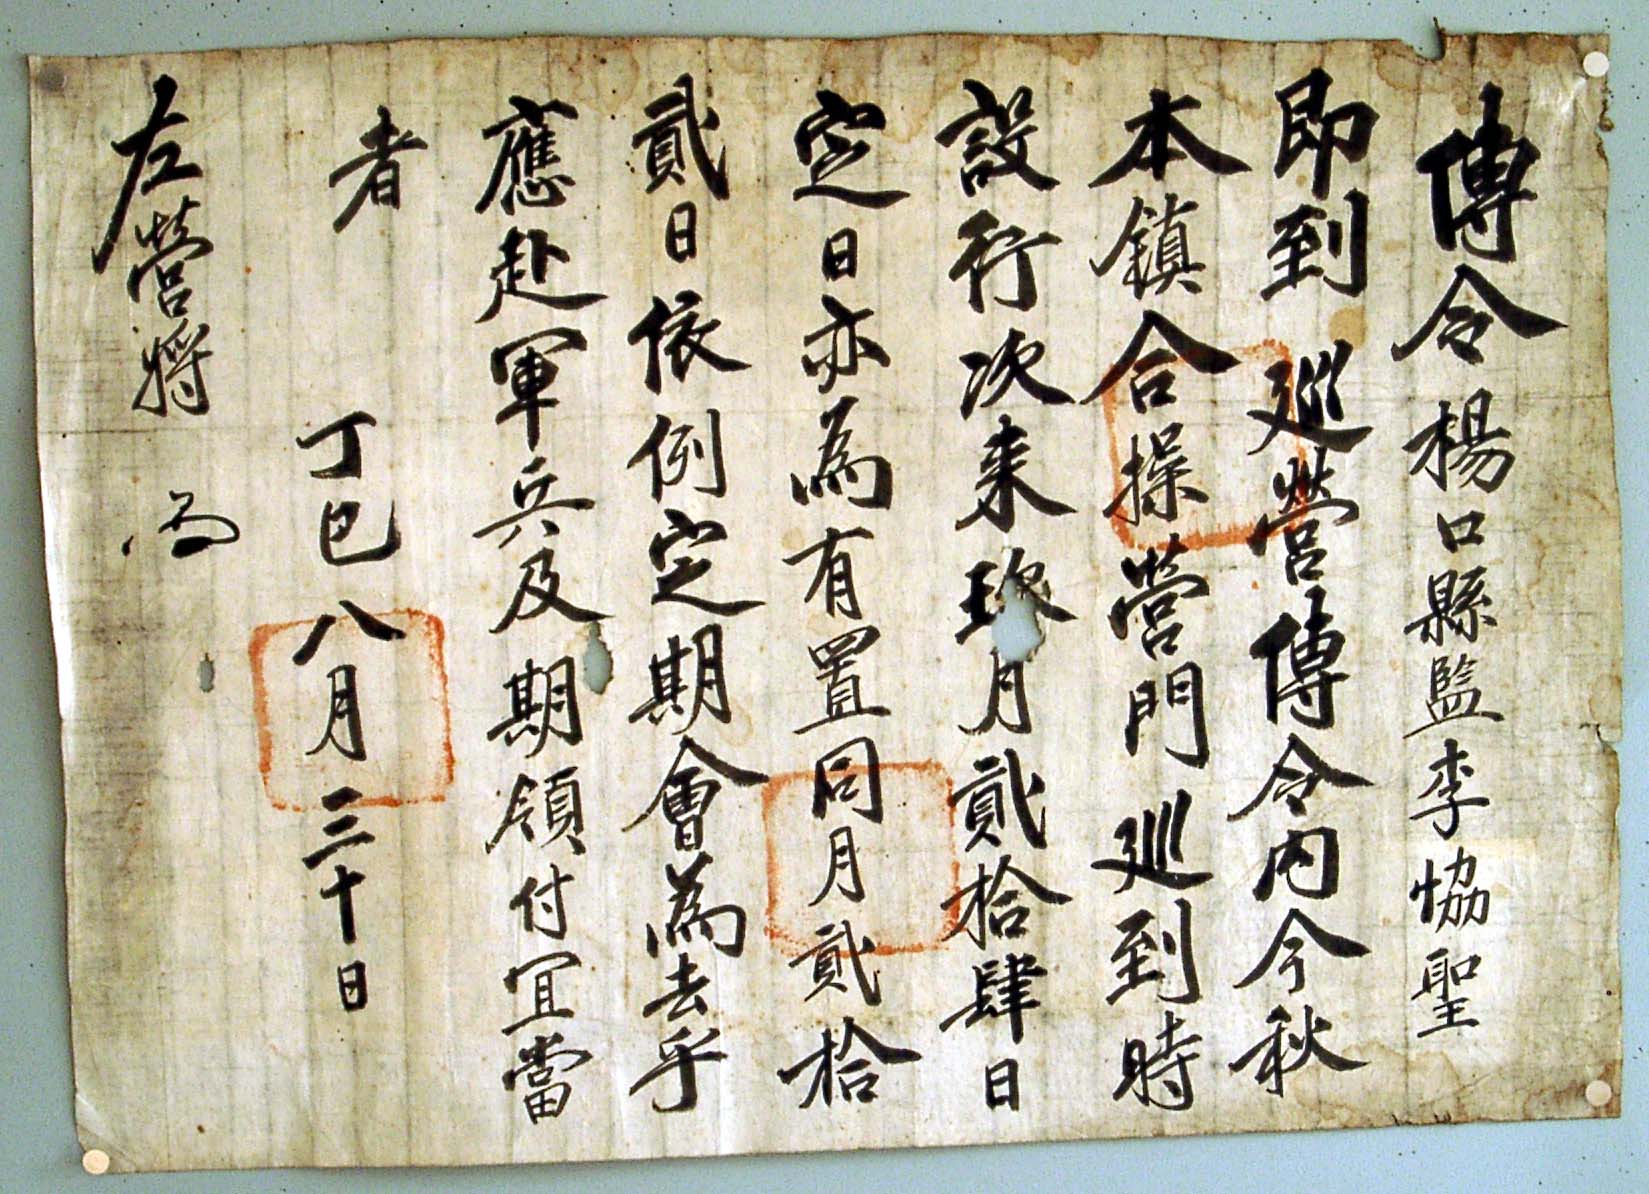 傳令楊口縣監李恊聖
即到 巡營傳令内今秋
本鎮合操營門巡到時
設行次来玖月貳拾肆日
定日亦為有置同月貳拾
貳日依例定期會為去乎
應赴軍兵及期領付冝當
者
丁巳八月三十日
左營將